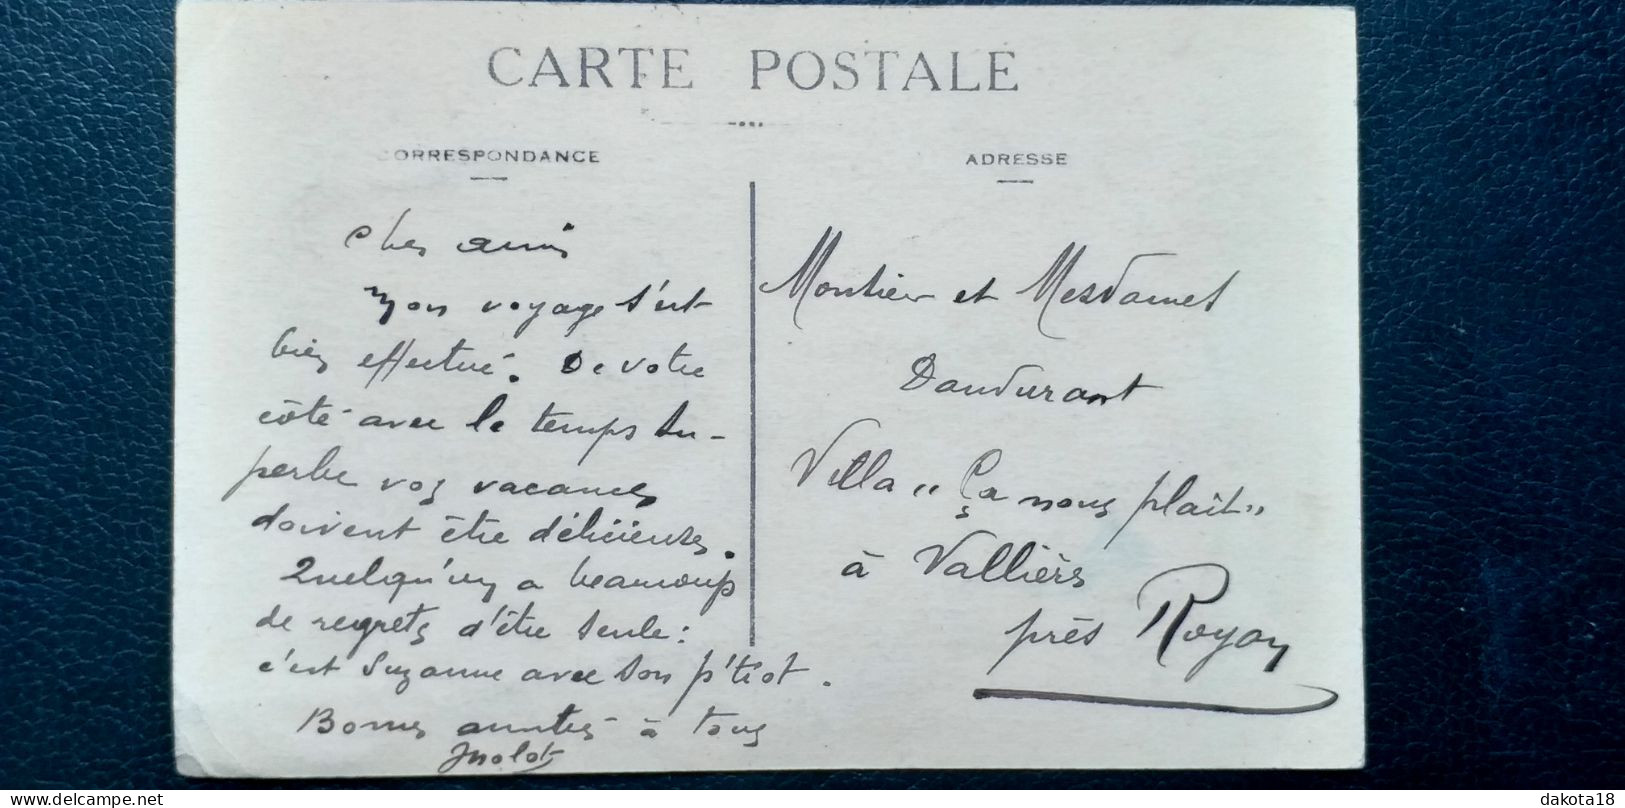 CARTE POSTALE
CORRESPONDANCE
Chers amis
Mon voyage s'est
bien effectué. De votre
côté avec le temps su-
perbe vos vacances
doivent être délicieuses.
Quelqu'un a beaucoup
de regrets d'être seule :
c'est Suzanne avec son p'tiot.
Bonnes amitiés à tous
ADRESSE
Monsieur et Mesdames
Dandurant
Villa "Ça nous plaît"
à Vallières
près Royan
dakota18